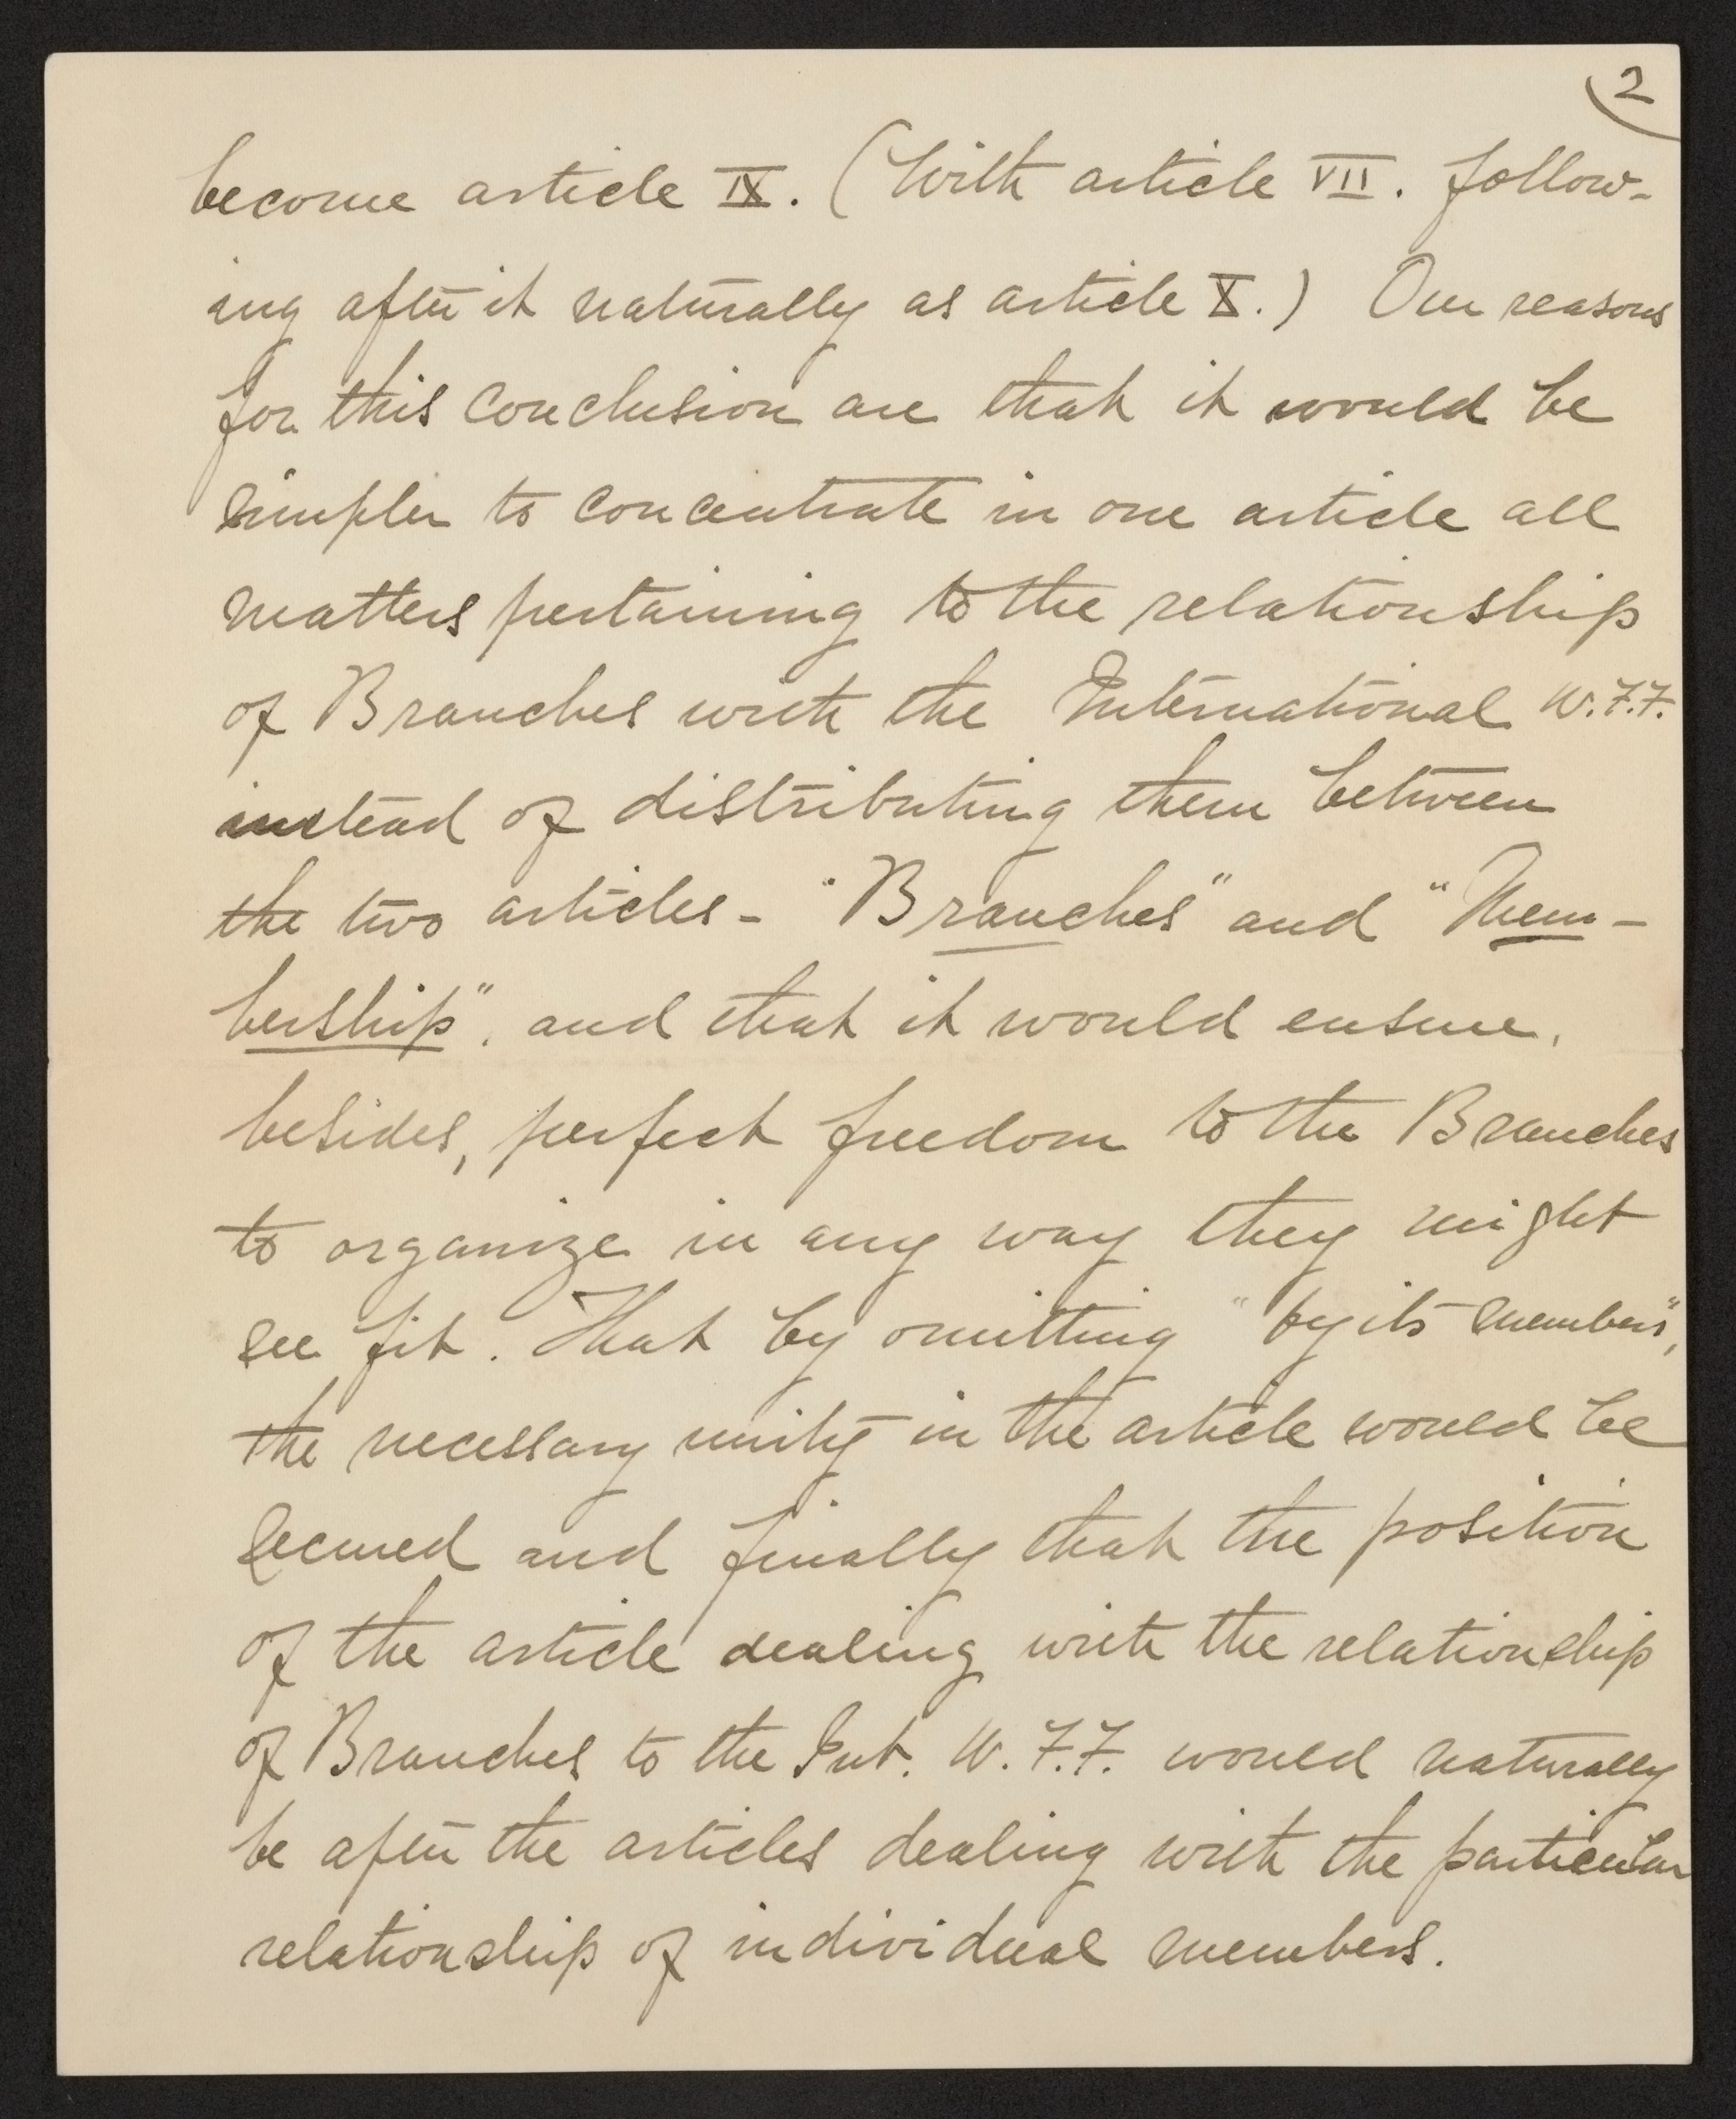 2
become article IX. (With article VII. follow-
ing after it naturally as article X.) Our reasons
for this conclusion are that it would be
simpler to concentrate in one article all
matters pertaining to the relationship
of Branches with the International W.F.F.
instead of distributing them between
the two articles - "Branches" and "Mem-
bership", and that it would ensure,
besides, perfect freedom to the Branches
to organize in any way they might
see fit. That by omitting "by its members",
the necessary unity in the article would be
secured and finally that the position
of the article dealing with the relationship
of Branches to the Int. W.F.F. would naturally
be after the articles dealing with the particular
relationship of individual members.